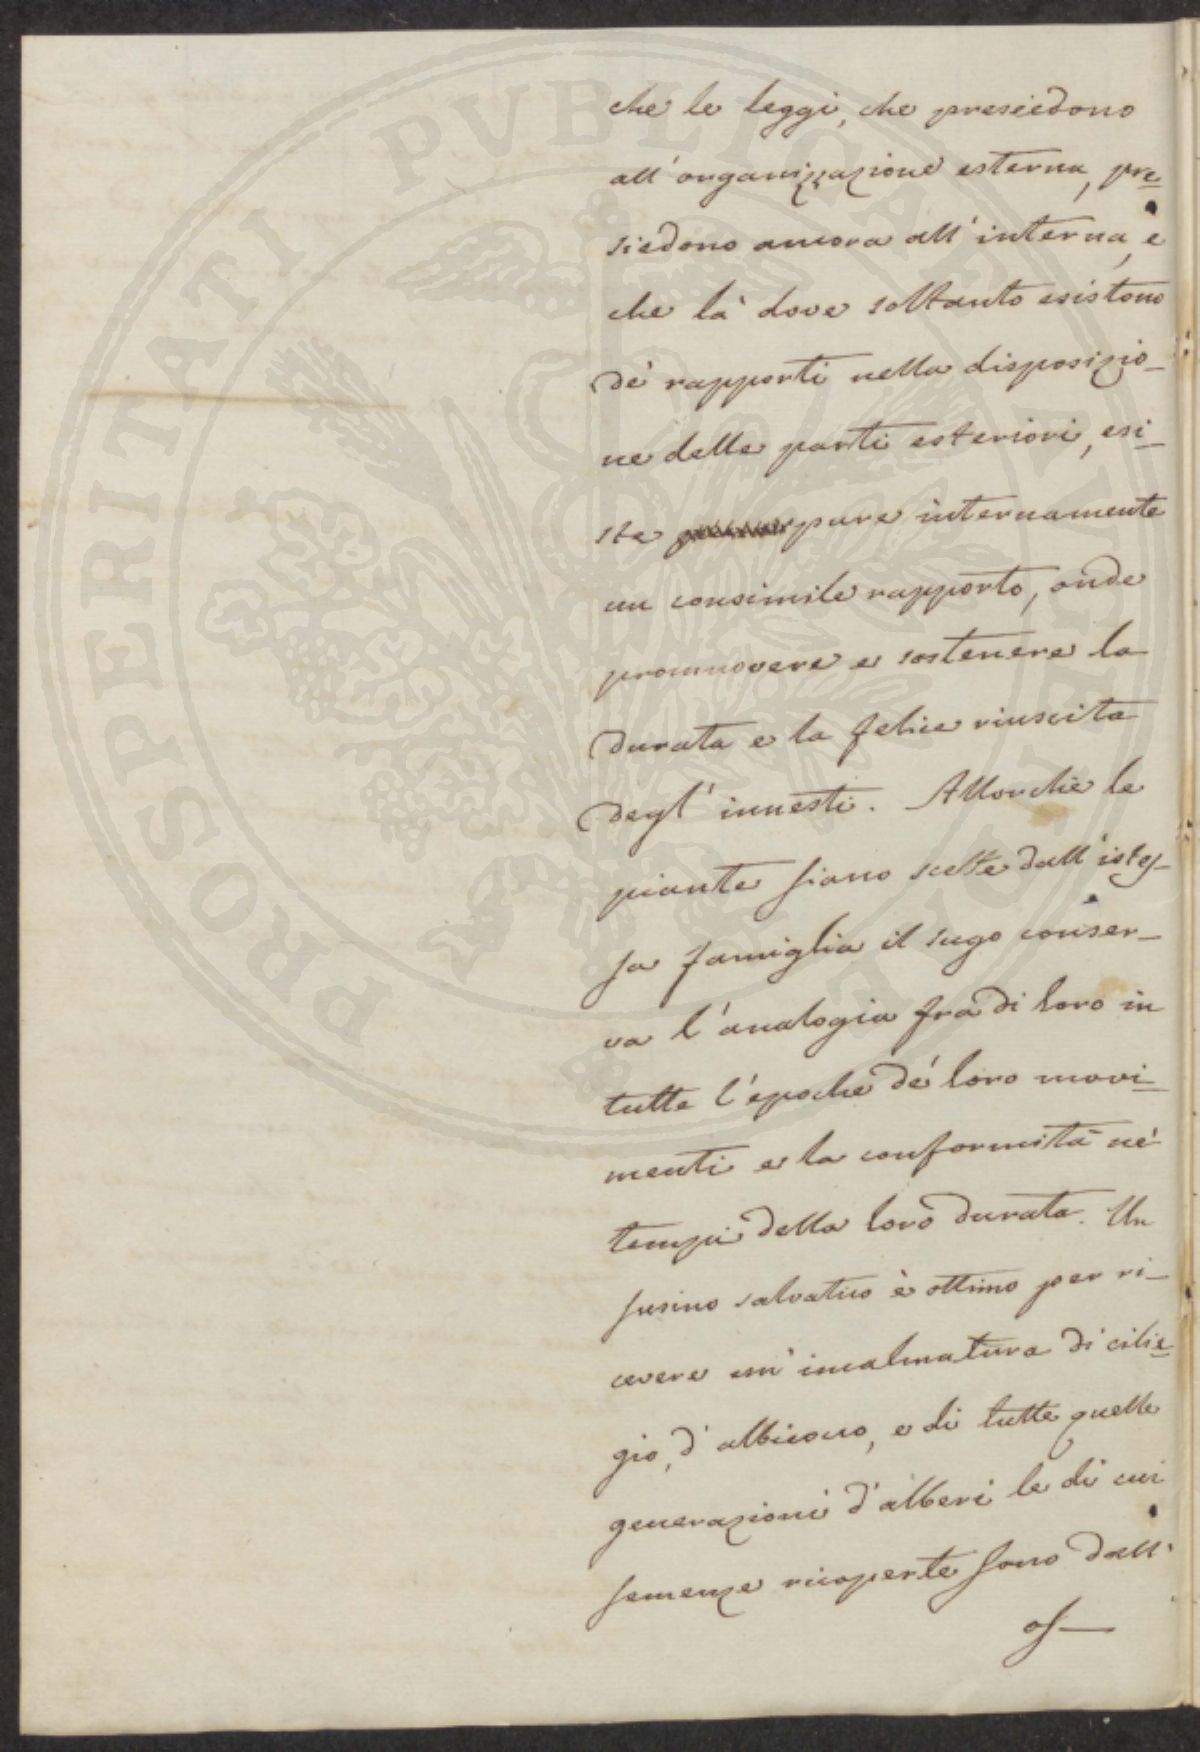 che le leggi, che presiedono
all'organizzazione esterna, pre=
siedono ancora all'interna, e
che là dove soltanto esistono
de' rapporti nella disposizio-
ne delle parti esteriori, esi=
ste pure internamente
un consimile rapporto, onde
promuovere e sostenere la
durata e la felice riuscita
degl'innesti. Allorchè le
piante siano scelte dall'istes-
sa famiglia il sugo conser-
va l'analogia fra di loro in
tutte l'epoche de' loro movi=
menti e la conformità ne'
tempi della loro durata. Un
susino salvatico è ottimo per ri-
cevere un'incalmatura di cilie=
gio, d'albicocco, e di tutte quelle
generazioni d'alberi le di cui
semenze ricoperte sono dall'
os-
PROSPERITATI PVBLICAE AVGENDAE